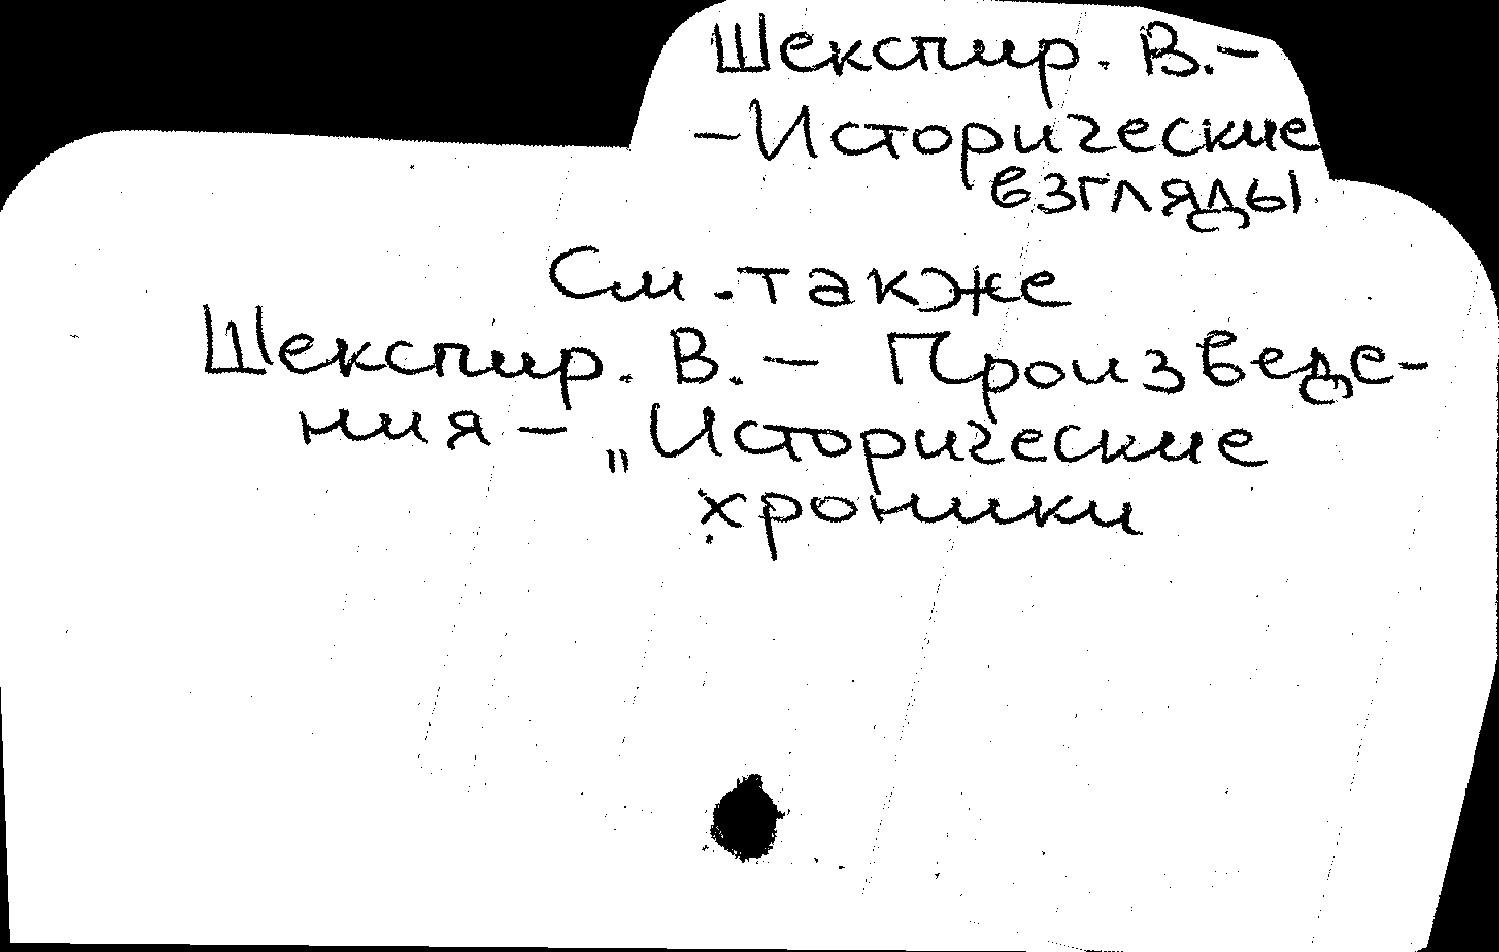 Шекспир. В.–
–Исторические
взгляды
См. также
Шекспир. В. – Произведе-
ния – „Исторические
хроники